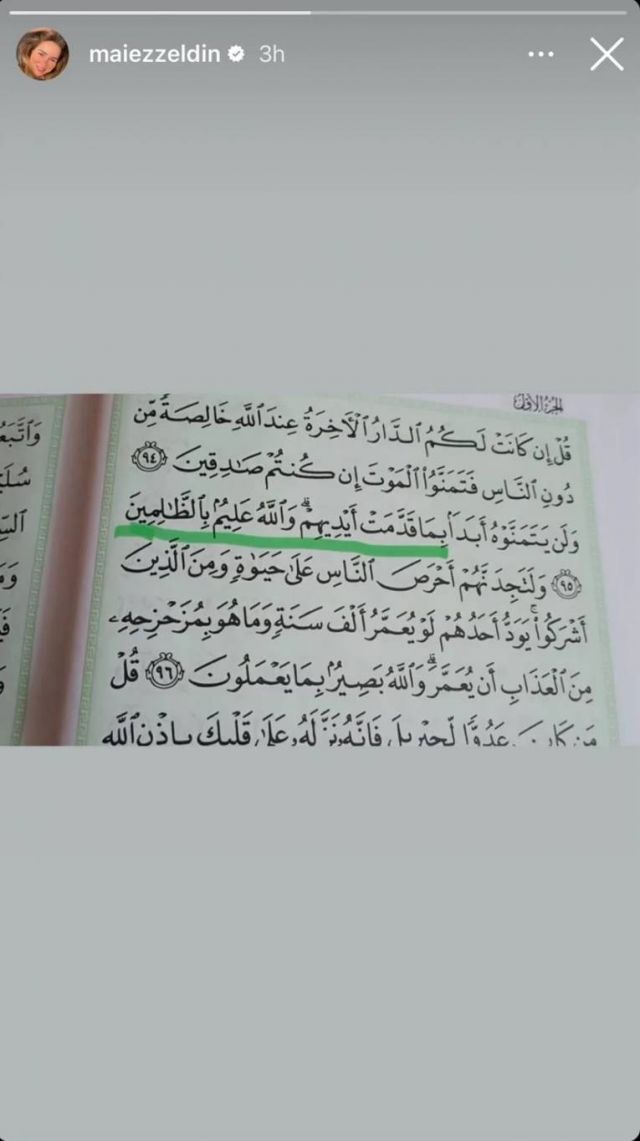 maiezzeldin 3h
الجزء الأول
قُلْ إِن كَانَتْ لَكُمُ الدَّارُ الْآخِرَةُ عِندَ اللَّهِ خَالِصَةً مِّن
دُونِ النَّاسِ فَتَمَنَّوُا الْمَوْتَ إِن كُنتُمْ صَادِقِينَ ﴿٩٤﴾
وَلَن يَتَمَنَّوْهُ أَبَدًا بِمَا قَدَّمَتْ أَيْدِيهِمْ ۗ وَاللَّهُ عَلِيمٌ بِالظَّالِمِينَ
﴿٩٥﴾ وَلَتَجِدَنَّهُمْ أَحْرَصَ النَّاسِ عَلَىٰ حَيَوٰةٍ وَمِنَ الَّذِينَ
أَشْرَكُوا ۚ يَوَدُّ أَحَدُهُمْ لَوْ يُعَمَّرُ أَلْفَ سَنَةٍ وَمَا هُوَ بِمُزَحْزِحِهِ
مِنَ الْعَذَابِ أَن يُعَمَّرَ ۗ وَاللَّهُ بَصِيرٌ بِمَا يَعْمَلُونَ ﴿٩٦﴾ قُلْ
مَن كَانَ عَدُوًّا لِّجِبْرِيلَ فَإِنَّهُ نَزَّلَهُ عَلَىٰ قَلْبِكَ بِإِذْنِ اللَّهِ